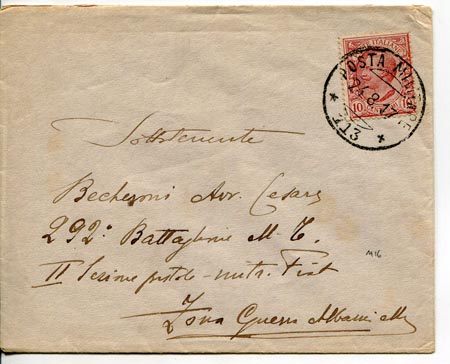 POSTE ITALIANE
10
POSTA MILITARE
24.8.17
* 213 *
Sottotenente
Becheroni Avv. Cesare
292° Battaglione M. T.
II Sezione pistole-mitr. Fiat
M16
Zona Guerra